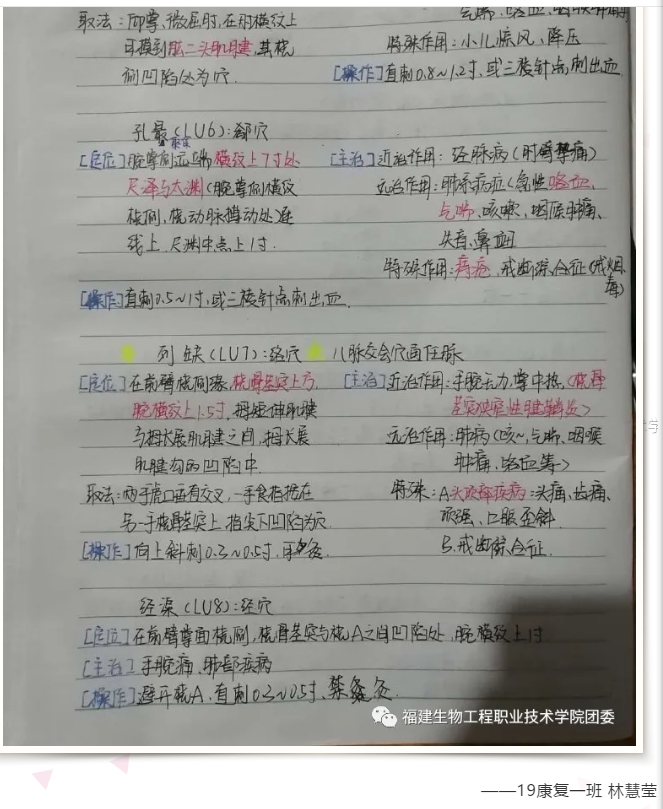 取法：仰掌、微屈肘，在肘横纹上
可摸到肱二头肌腱，其桡
侧凹陷处为穴
气喘、咯血、咽喉肿痛
特殊作用：小儿惊风、降压
[操作]直刺0.8~1.2寸，或三棱针点刺出血
孔最(LU6)：郄穴
[定位]腕掌侧远端横纹上7寸处
尺泽与太渊(腕掌侧横纹
桡侧，桡动脉搏动处)连
线上，尺渊中点上1寸
[主治]近治作用：经脉病(肘臂挛痛)
远治作用：肺系病症(急性咯血、
气喘、咳嗽、咽喉肿痛、
失音、鼻衄
特殊作用：痔疮、戒断综合征(戒烟
毒)
[操作]直刺0.5~1寸，或三棱针点刺出血
列缺(LU7)：络穴 八脉交会穴通任脉
[定位]在前臂桡侧缘，桡骨茎突上方
腕横纹上1.5寸，拇短伸肌腱
与拇长展肌腱之间，拇长展
肌腱沟的凹陷中
取法：两手虎口垂直交叉，一手食指按在
另一手桡骨茎突上，指尖下凹陷为穴
[操作]向上斜刺0.3~0.5寸，可灸
[主治]近治作用：手腕无力，掌中热，(桡骨
茎突狭窄性腱鞘炎)
远治作用：肺病(咳~，气喘，咽喉
肿痛，咯血等)
特殊：A头项部疾病：头痛、齿痛、
项强、口眼歪斜
B.戒断综合征
经渠(LU8)：经穴
[定位]在前臂掌面桡侧，桡骨茎突与桡A之间凹陷处，腕横纹上1寸
[主治]手腕痛，肺部疾病
[操作]避开桡A，直刺0.3~0.5寸、禁灸
福建生物工程职业技术学院团委
——19康复一班 林慧莹